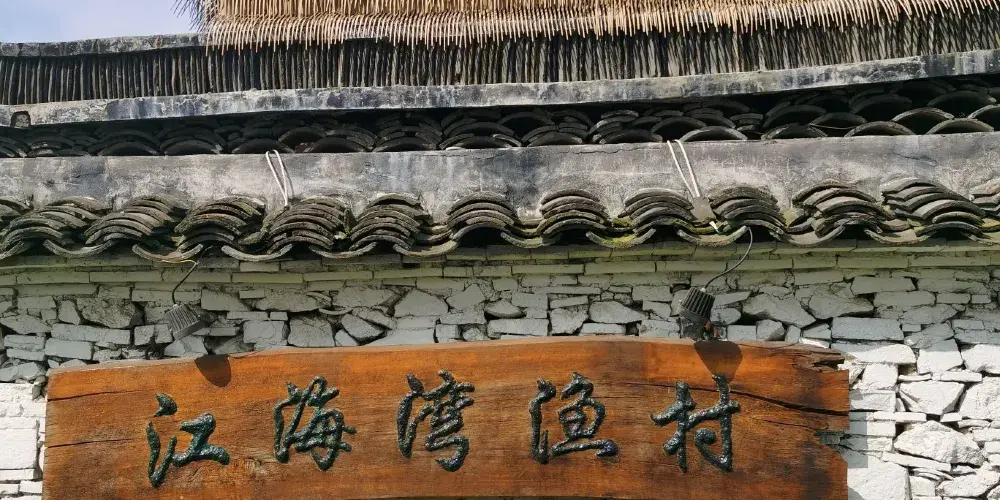 江海湾渔村